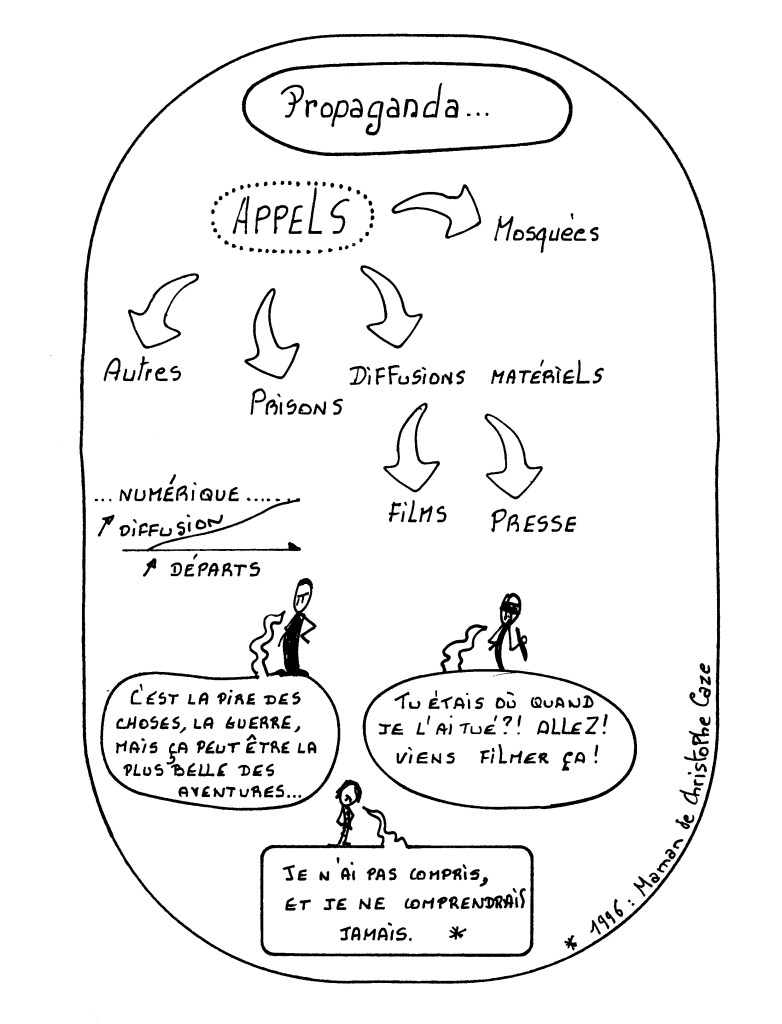 Propaganda...
APPELS
Mosquées
Autres
PRISONS
DIFFUSIONS MATÉRIELS
FILMS
PRESSE
... NUMÉRIQUE .......
DIFFUSION
DÉPARTS
C'EST LA PIRE DES
CHOSES, LA GUERRE,
MAIS ÇA PEUT ÊTRE LA
PLUS BELLE DES
AVENTURES...
TU ÉTAIS OÙ QUAND
JE L'AI TUÉ?! ALLEZ!
VIENS FILMER ÇA!
JE N'AI PAS COMPRIS,
ET JE NE COMPRENDRAIS
JAMAIS. *
* 1996 : Maman de Christophe Caze